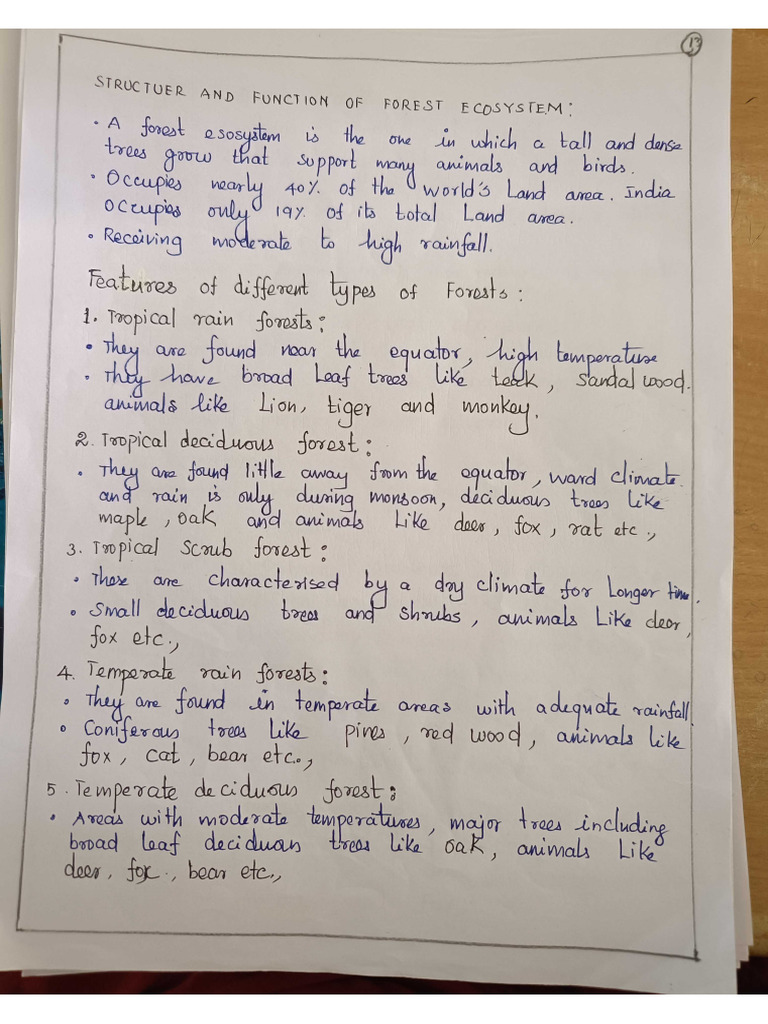 13
STRUCTUER AND FUNCTION OF FOREST ECOSYSTEM:
• A forest esosystem is the one in which a tall and dense
trees grow that support many animals and birds.
• Occupies nearly 40% of the world's Land area. India
Occupies only 19% of its total Land area.
• Receiving moderate to high rainfall.
Features of different types of Forests:
1. Tropical rain forests:
• They are found near the equator, high temperature
• They have broad Leaf trees like teak, Sandal wood.
animals like Lion, tiger and monkey.
2. Tropical deciduous forest:
• They are found little away from the equator, ward climate
and rain is only during monsoon, deciduous trees like
maple, oak and animals Like deer, fox, rat etc.,
3. Tropical Scrub forest:
• These are characterised by a dry climate for Longer time.
• Small deciduous trees and shrubs, animals Like deer,
fox etc.,
4. Temperate rain forests:
• They are found in temperate areas with adequate rainfall
• Coniferous trees like pines, red wood, animals like
fox, cat, bear etc.,
5. Temperate deciduous forest:
• Areas with moderate temperatures, major trees including
broad leaf deciduous trees like oak, animals Like
deer, fox., bear etc.,